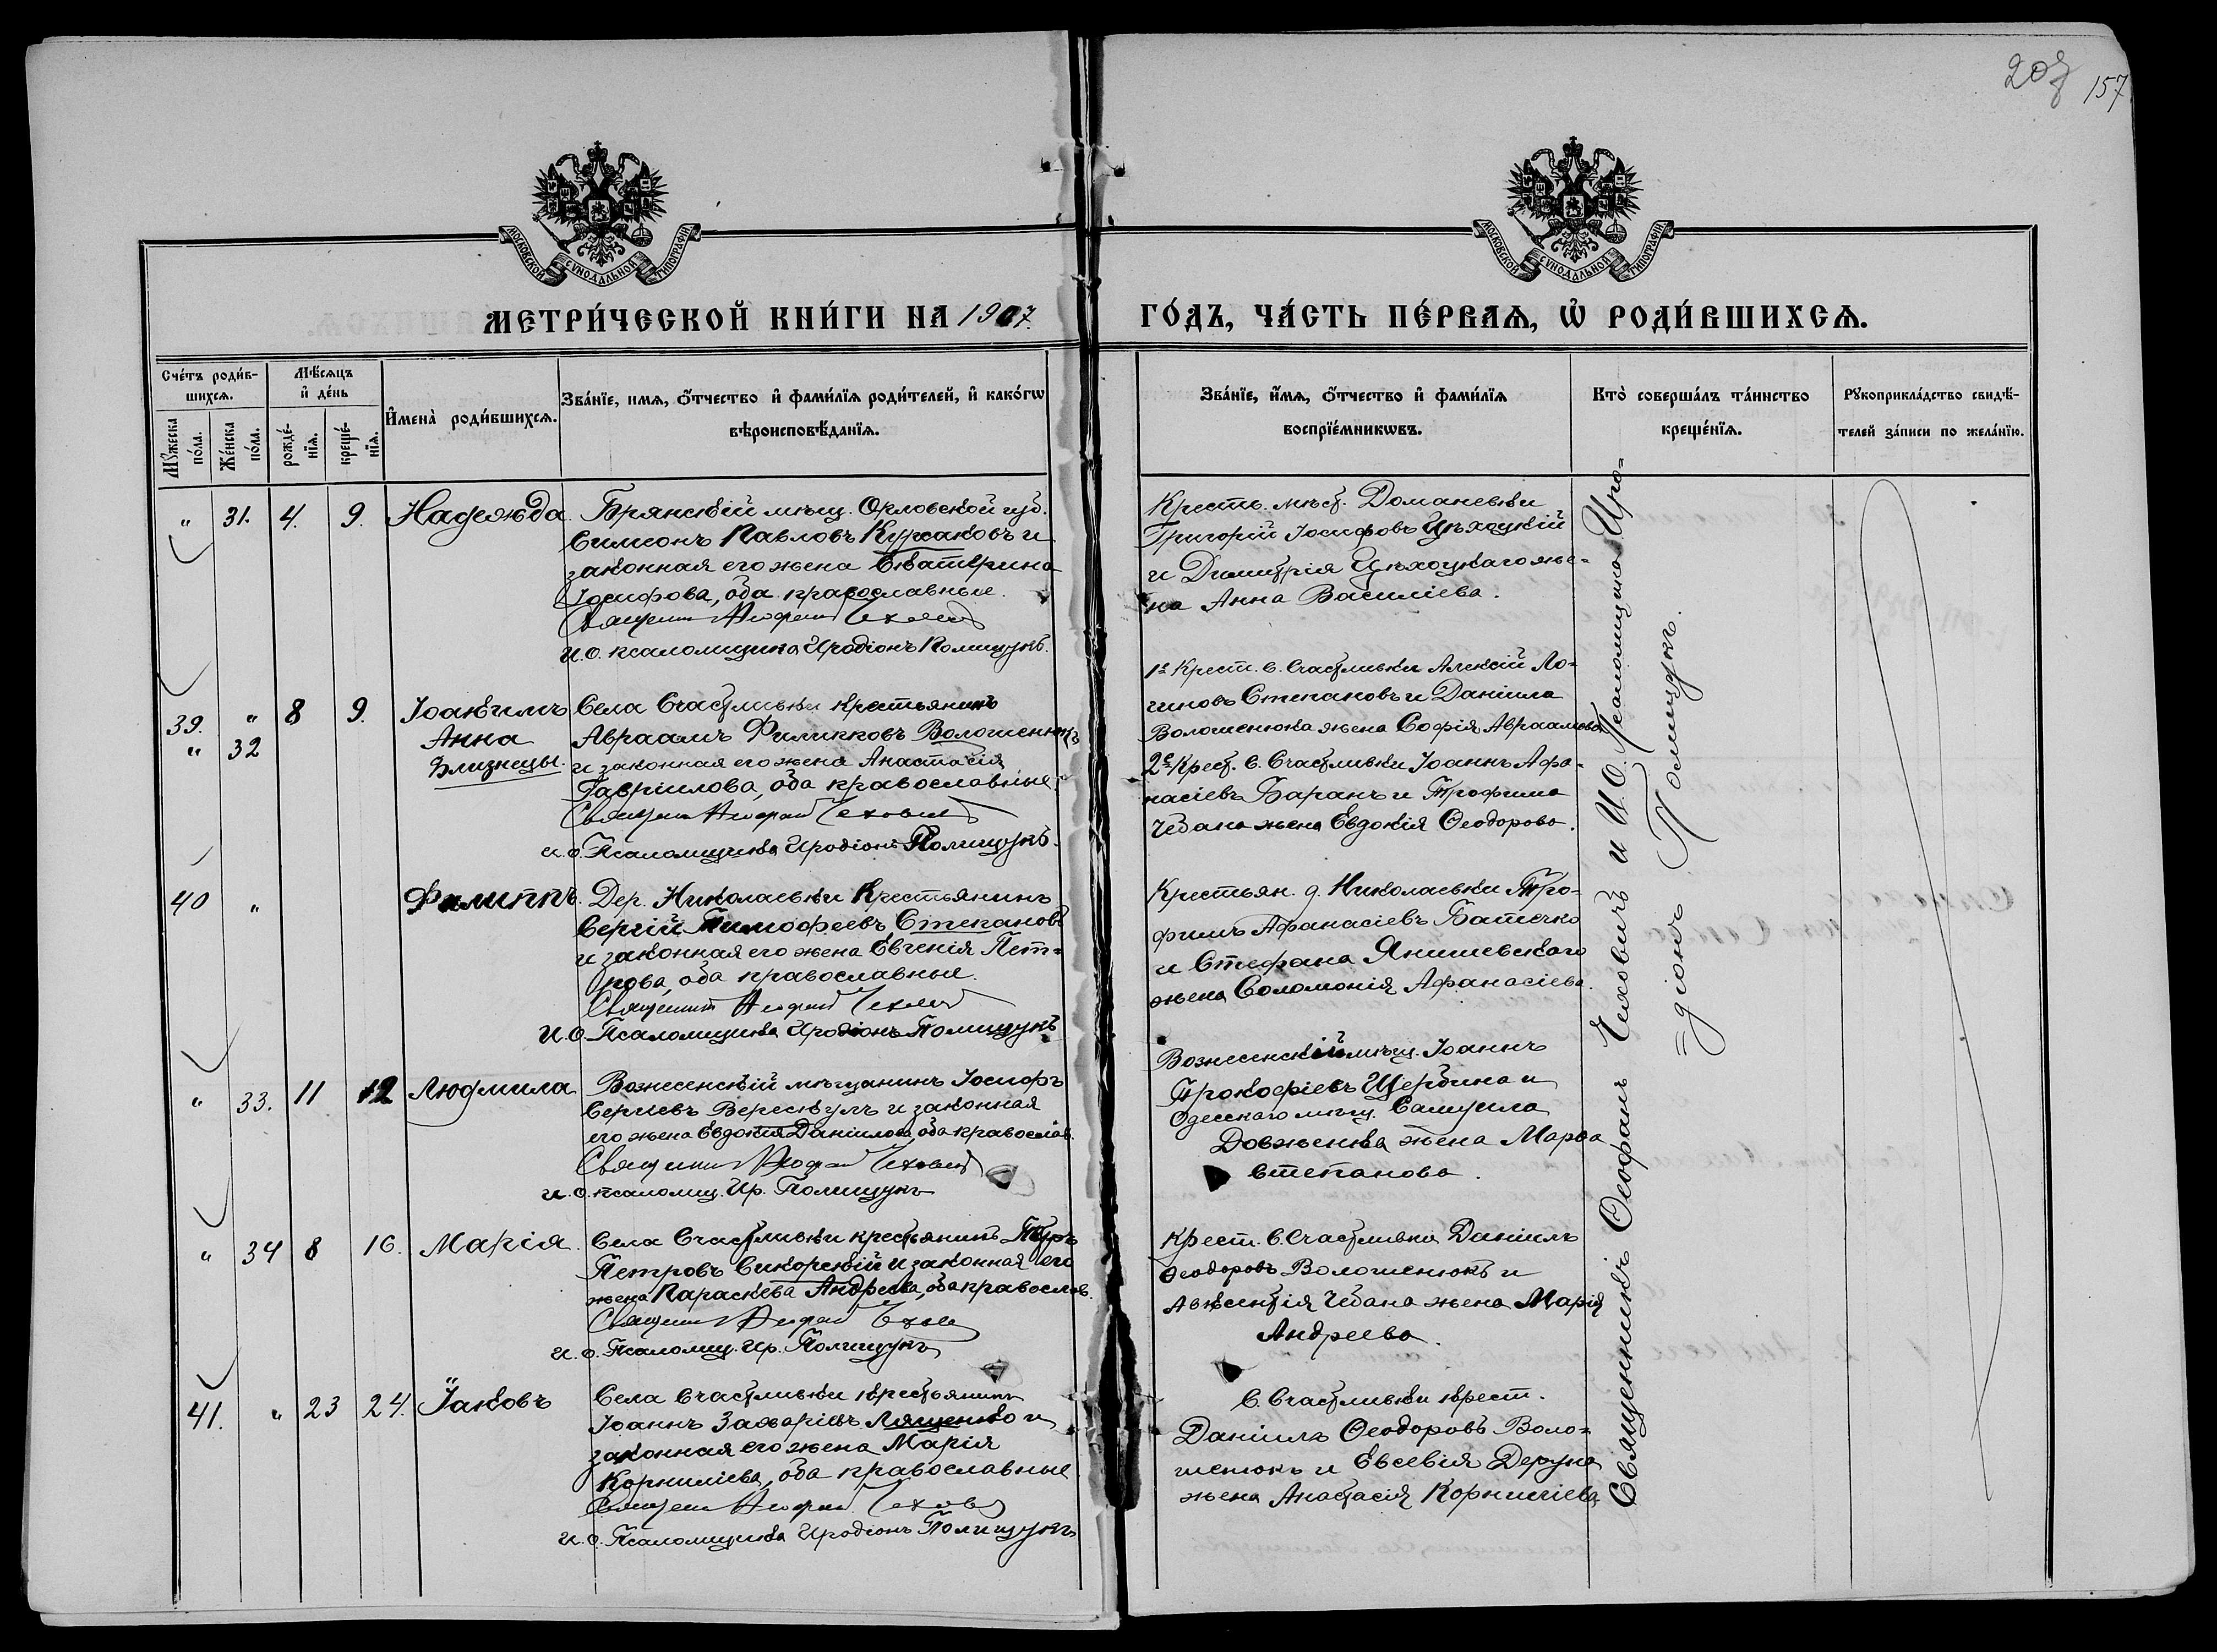 207 157
МОСКОВСКОЙ СѴНОДАЛЬНОЙ ТИПОГРАФІИ
МОСКОВСКОЙ СѴНОДАЛЬНОЙ ТИПОГРАФІИ
МЕТРИ́ЧЕСКОЙ КНИ́ГИ НА 1907
ГО́ДЪ, ЧА́СТЬ ПЕ́РВАѦ, Ѡ҆ РОДИ́ВШИХСѦ.
Сче́тъ роди́в-
шихсѧ.
Мꙋ́жеска
по́ла.
Же́нска
по́ла.
Мѣ́сѧцъ
и҆ де́нь
рожде́-
нїѧ.
креще́-
нїѧ.
И҆мена̀ роди́вшихсѧ.
Зва́нїе, имѧ, ѻ҆́тчество и҆ фами́лїѧ роди́телей, и҆ како́гѡ
вѣроисповѣ́данїѧ.
Зва́нїе, и҆́мѧ, ѻ҆́тчество и҆ фами́лїѧ
воспрїе́мникѡвъ.
Кто̀ соверша́лъ та́инство
креще́нїѧ.
Рꙋкоприкла́дство свидѣ́-
телей за́писи по жела́нїю.
" 31. 4. 9. Надежда.
Брянскій мѣщ. Орловской губ.
Симеонъ Павловъ Курсаковъ и
законная его жена Екатерина
Іосифова, оба православные.
Священ Феофан Чехович
И. О. псаломщика Иродіонъ Полищукъ.
Крест. мѣст. Доманевки
Григорій Іосифовъ Цѣхоцкій
и Димитрія Цѣхоцкаго же-
на Анна Василіева.
39. " 8 9. Іоакимъ
" 32 Анна
Близнецы.
Села Счастливки крестьянинъ
Авраамъ Филипповъ Волошенюкъ
и законная его жена Анастасія
Гавріилова, оба православные.
Священ Феофан Чехович
и. о. Псаломщика Иродіонъ Полищукъ.
1е Крест. с. Счастливки Алексій Ло-
гиновъ Степановъ и Даніила
Волошенюка жена Софія Авраамова
2е Крест. с. Счастливки Іоаннъ Афа-
насіевъ Баранъ и Трофима
Чебана жена Евдокія Ѳеодорова.
40 " Филиппъ.
Дер. Николаевки Крестьянинъ
Сергій Тимофеевъ Степановъ
и законная его жена Евгенія Пет-
рова, оба православные.
Священник Феофан Чехович
И. О. Псаломщика Иродіонъ Полищукъ
Крестьян. д. Николаевки Тро-
фимъ Афанасіевъ Батечко
и Стефана Янишевскаго
жена Соломонія Афанасіева.
" 33. 11 12 Людмила
Вознесенскій мѣщанинъ Іосифъ
Сергіевъ Верескулъ и законная
его жена Евдокія Даніилова, оба православ.
Священник Феофан Чехович
и. о. псаломщ. Ир. Полищукъ
Вознесенскій мѣщ. Іоаннъ
Прокофіевъ Щербина и
Одесскаго мѣщ. Самуила
Довженка жена Марѳа
Степанова.
" 34 8 16. Марія.
Села Счастливки крестьянинъ Петръ
Петровъ Сикорскій и законная его
жена Параскева Андреева, оба православ.
Священ Феофан Чехович
и. о. Псаломщ. Ир. Полищукъ
Крест. с. Счастливки Даніилъ
Ѳеодоровъ Волошенюкъ и
Авксентія Чебана жена Марія
Андреева.
41. " 23 24. Іаковъ
Села Счастливки крестьянинъ
Іоаннъ Захаріевъ Лященко и
законная его жена Марія
Корниліева, оба православные
Священ Феофан Чехович
и. о. Псаломщика Иродіонъ Полищукъ
С. Счастливки крест.
Даніилъ Ѳеодоровъ Воло-
шенюкъ и Евсевія Деркуна
жена Анастасія Корниліева
Священникъ Ѳеофанъ Чеховичъ и И. О. Псаломщика Иро-
=діонъ Полищукъ.